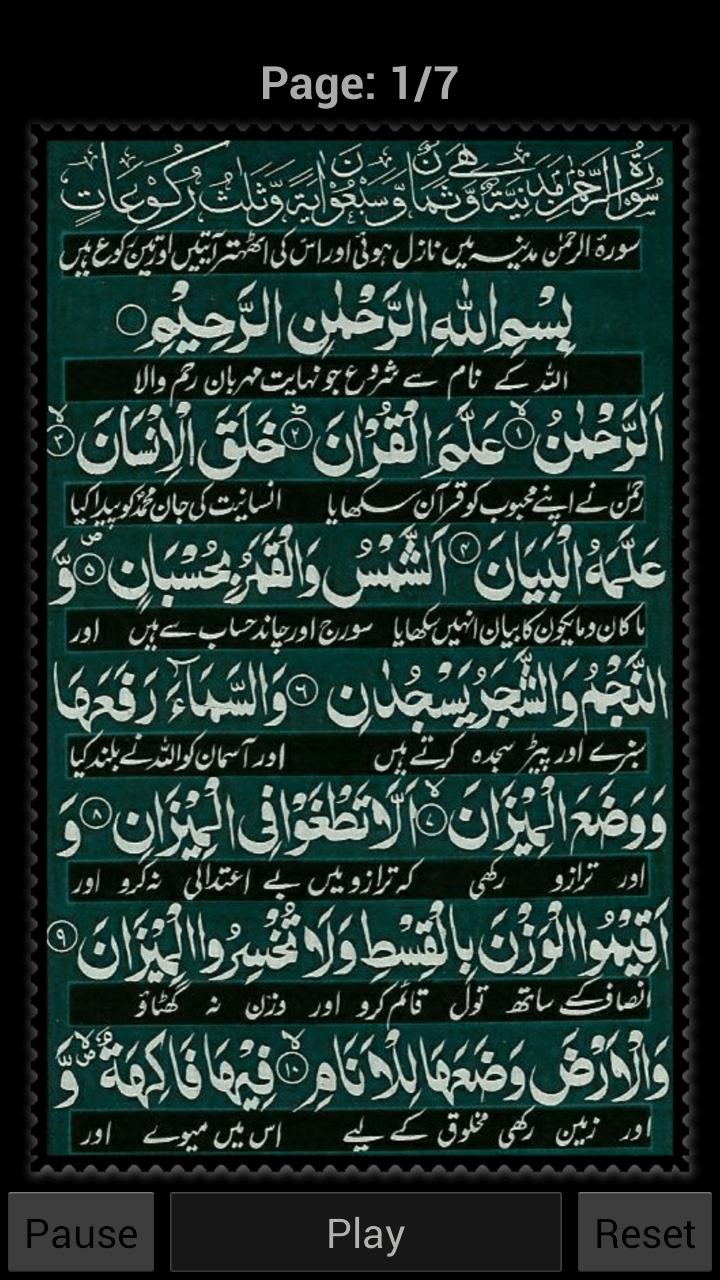 Page: 1/7
سُوْرَةُ الرَّحْمٰنِ مَدَنِيَّةٌ وَّهِيَ ثَمَانٌ وَّسَبْعُوْنَ اٰيَةً وَّثَلٰثُ رُكُوْعَاتٍ
سورۃ الرحمٰن مدینہ میں نازل ہوئی اور اس کی اٹھہتر آیتیں اور تین رکوع ہیں
بِسْمِ اللّٰهِ الرَّحْمٰنِ الرَّحِيْمِ
اللہ کے نام سے شروع جو نہایت مہربان رحم والا
اَلرَّحْمٰنُ ۱ عَلَّمَ الْقُرْاٰنَ ۲ خَلَقَ الْاِنْسَانَ ۳
رحمٰن نے اپنے محبوب کو قرآن سکھایا انسانیت کی جان محمدؐ کو پیدا کیا
عَلَّمَهُ الْبَيَانَ ۴ اَلشَّمْسُ وَالْقَمَرُ بِحُسْبَانٍ ۵ وَّ
ما کان و ما یکون کا بیان انہیں سکھایا سورج اور چاند حساب سے ہیں اور
النَّجْمُ وَالشَّجَرُ يَسْجُدٰنِ ۶ وَالسَّمَآءَ رَفَعَهَا
سبزے اور پیڑ سجدہ کرتے ہیں اور آسمان کو اللہ نے بلند کیا
وَوَضَعَ الْمِيْزَانَ ۷ اَلَّا تَطْغَوْا فِى الْمِيْزَانِ ۸ وَ
اور ترازو رکھی کہ ترازو میں بے اعتدالی نہ کرو اور
اَقِيْمُوا الْوَزْنَ بِالْقِسْطِ وَلَا تُخْسِرُوا الْمِيْزَانَ ۹
انصاف کے ساتھ تول قائم کرو اور وزن نہ گھٹاؤ
وَالْاَرْضَ وَضَعَهَا لِلْاَنَامِ ۱۰ فِيْهَا فَاكِهَةٌ وَّ
اور زمین رکھی مخلوق کے لیے اس میں میوے اور
Pause Play Reset